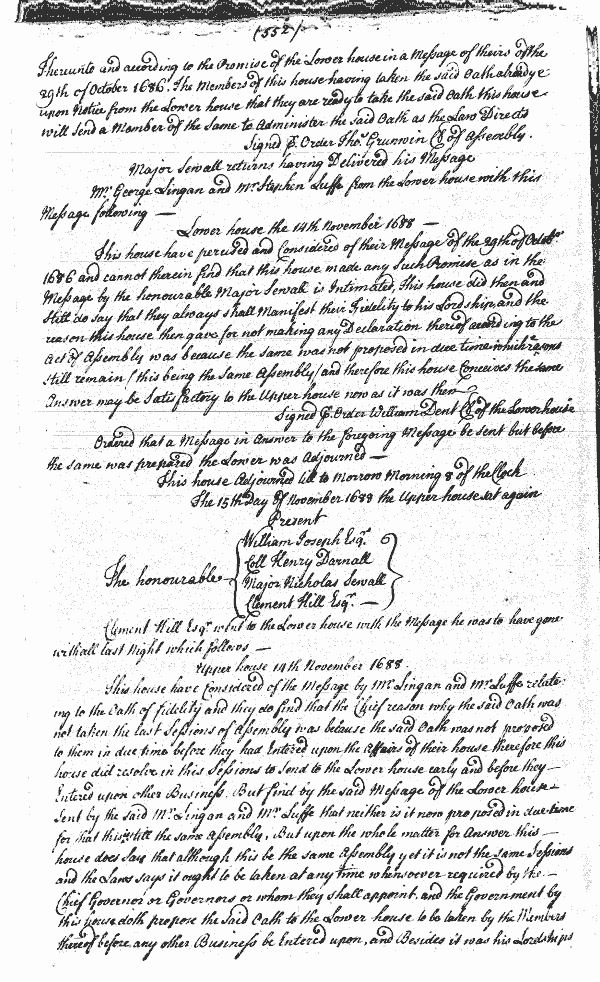 (552)
Thereunto and according to the Promise of the Lower house in a Message of theirs of the
29th of October 1686. The Members of this house having taken the said Oath already
upon Notice from the Lower house that they are ready to take the said Oath this house
will send a Member of the Same to Administer the said Oath as the Law Directs
Signed P. Order Thos. Grunwin Cl of Assembly.
Major Sewall returns having Delivered his Message
Mr. George Lingan and Mr. Stephen Luffe from the Lower house with this
Message following —
Lower house the 14th November 1688 —
This house have perused and Considered of their Message of the 29th of Octobr
1686 and cannot therein find that this house made any Such Promise as in the
Message by the honourable Major Sewall is Intimated. This house did then and
Still do say that they always shall Manifest their Fidelity to his Lordship, and the
reason this house then gave for not making any Declaration thereof according to the
Act of Assembly was because the same was not proposed in due time which reasons
still remain (this being the Same Assembly) and therefore this house Conceives the same
Answer may be Satisfactory to the Upper house now as it was then
Signed P. Order William Dent Cl of the Lower house
Ordered that a Message in Answer to the foregoing Message be sent but before
the same was prepared the Lower was Adjourned —
This house Adjourned till to Morrow Morning 8 of the Clock
The 15th Day of November 1688 the Upper house sat again
Present
The honourable
William Joseph Esqr.
Coll Henry Darnall
Major Nicholas Sewall
Clement Hill Esqr. —
Clement Hill Esqr. went to the Lower house with the Message he was to have gone
withall last Night which follows —
Upper house 14th November 1688.
This house have Considered of the Message by Mr. Lingan and Mr. Luffe relate-
ing to the Oath of fidelity and they do find that the Chief reason why the said Oath was
not taken the last Sessions of Assembly was because the said Oath was not proposed
to them in due time before they had Entered upon the Affairs of their house therefore this
house did resolve in this Sessions to Send to the Lower house early and before they —
Entered upon other Business. But find by the said Message of the Lower house
Sent by the said Mr. Lingan and Mr. Luffe that neither is it now proposed in due time
for that this still the same Assembly, But upon the whole matter for Answer this —
house does Say that although this be the same Assembly yet it is not the same Sessions
and the Laws says it ought to be taken at any time whensoever required by the —
Chief Governor or Governors or whom they shall appoint. and the Government by
this house doth propose the Said Oath to the Lower house to be taken by the Members
thereof before any other Business be Entered upon, and Besides it was his Lordships